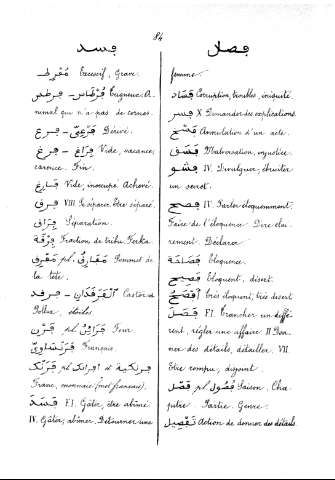 84
فسد
فصل
مُفْرِط Excessif, Grave.
فرطس - فِرْطَاس Eugueur. A-
nimal qui n'a pas de cornes.
فرع - فَرْعِيّ Dérivé.
فرغ - فِرَاغ Vide, vacance,
carence. Fin.
فَارِغ Vide, inoccupé. Achevé.
فرق VIII Se séparer. Être séparé.
فِرَاق Séparation.
فِرْقَة Fraction de tribu, Ferka.
مَفْرِق pl. مَفَارِق Sommet de
la tête.
فرقد - الفَرْقَدَان Castor et
Pollux, étoiles.
فُرْن pl. Four.
Français.
فرنك pl. افرانك et فرنكية
Franc, monnaie (mot français).
فَسَدَ F.I. Gâter, être abîmé
IV. Gâter, abîmer. Détourner une
femme.
فَسَاد Corruption, troubles, iniquité.
فسر X Demander des explications.
فَسْخ Annulation d'un acte.
فِسْق Malversation, injustice.
فشو IV. Divulguer, ébruiter
un secret.
فصح IV. Parler éloquemment.
Faire de l'éloquence. Dire clai-
rement. Déclarer.
فَصَاحَة Éloquence.
فَصِيح Éloquent, disert.
أَفْصَح très éloquent, très disert
فَصَلَ F.I. Trancher un diffé-
rent, régler une affaire. II Don-
ner des détails, détailler. VII
Être rompu, disjoint.
فَصْل pl. فُصُول Saison. Cha-
pitre. Partie. Genre.
تَفْصِيل Action de donner des détails.